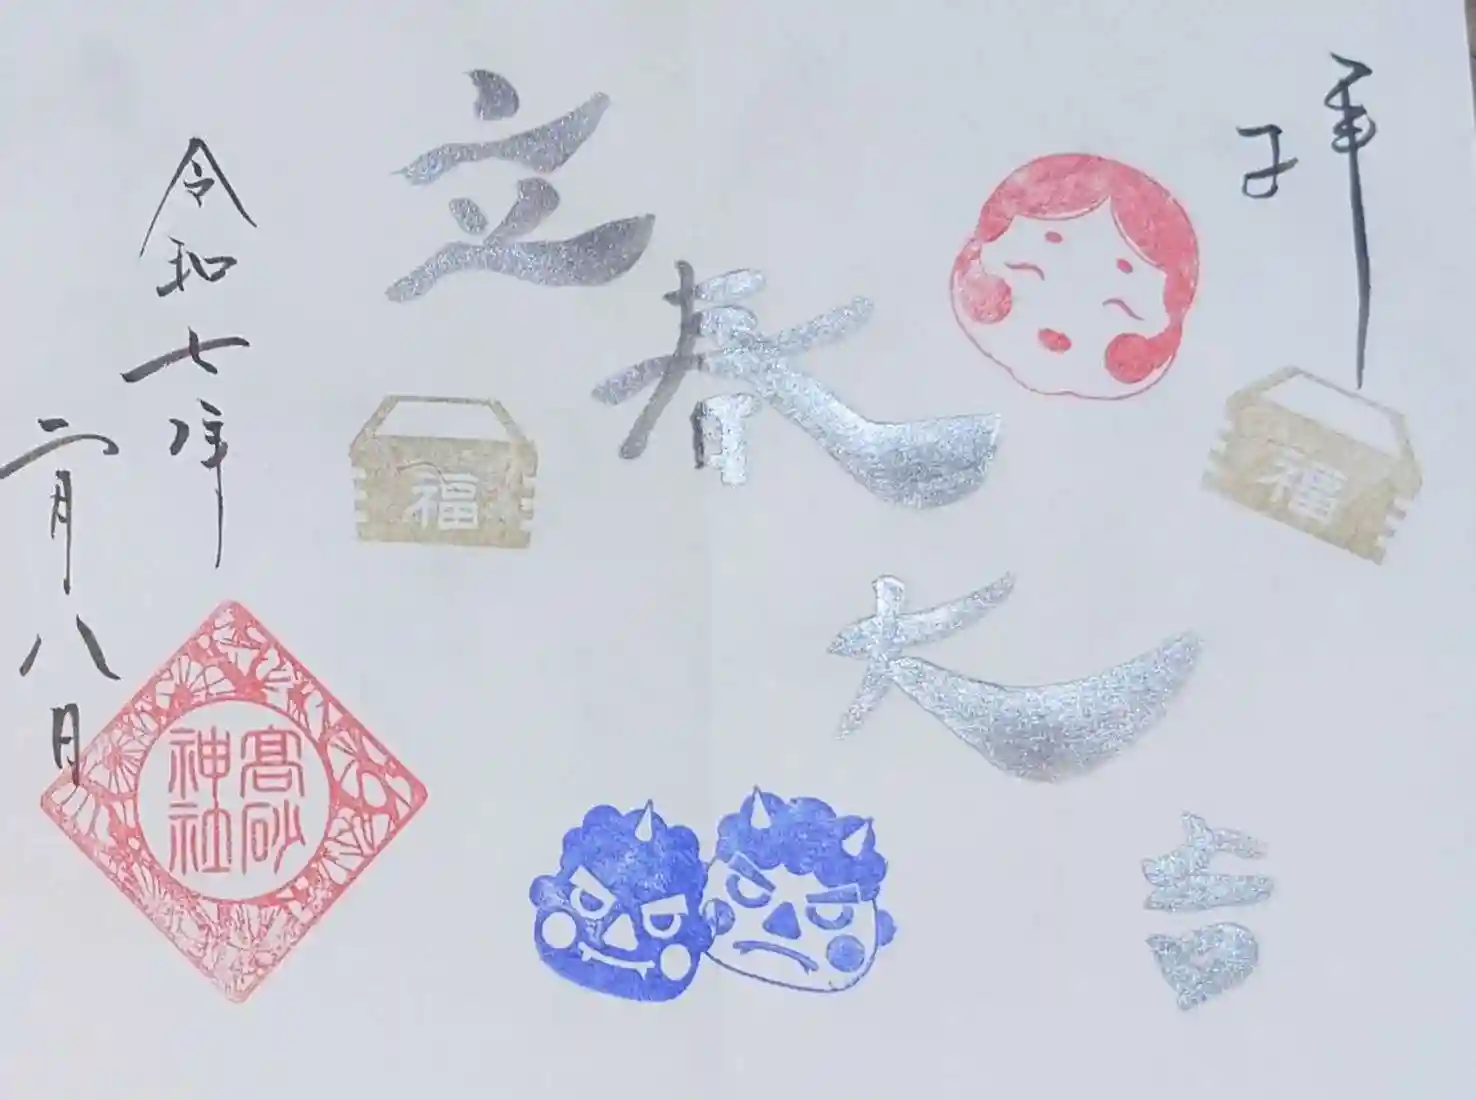 奉拝
立春大吉
福
福
令和七年
二月八日
高砂
神社